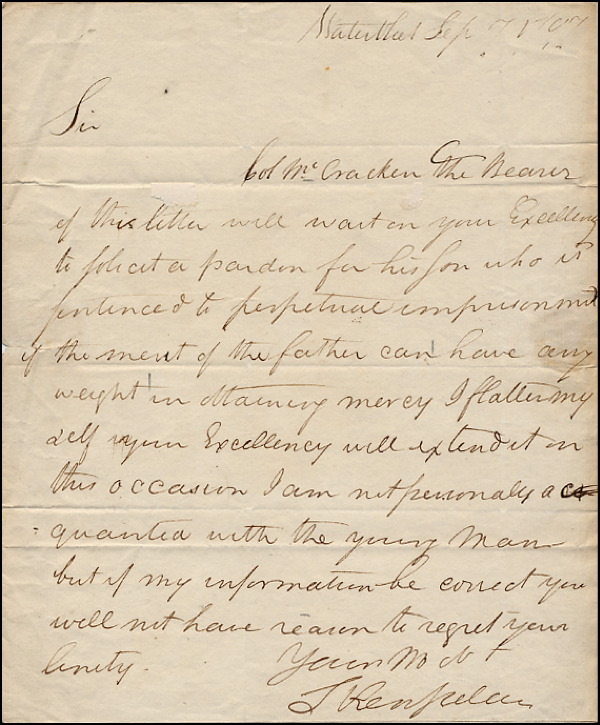 Sep 7
Sir
Col Mc Cracken the Bearer
of this letter will wait on your Excellency
to solicit a pardon for his son who is
sentenced to perpetual imprisonmt
if the merit of the father can have any
weight in obtaining mercy I flatter my
self your Excellency will extend it on
this occasion I am not personally ac
quanted with the young man
but if my information be correct you
will not have reason to regret your
linity.
Yours